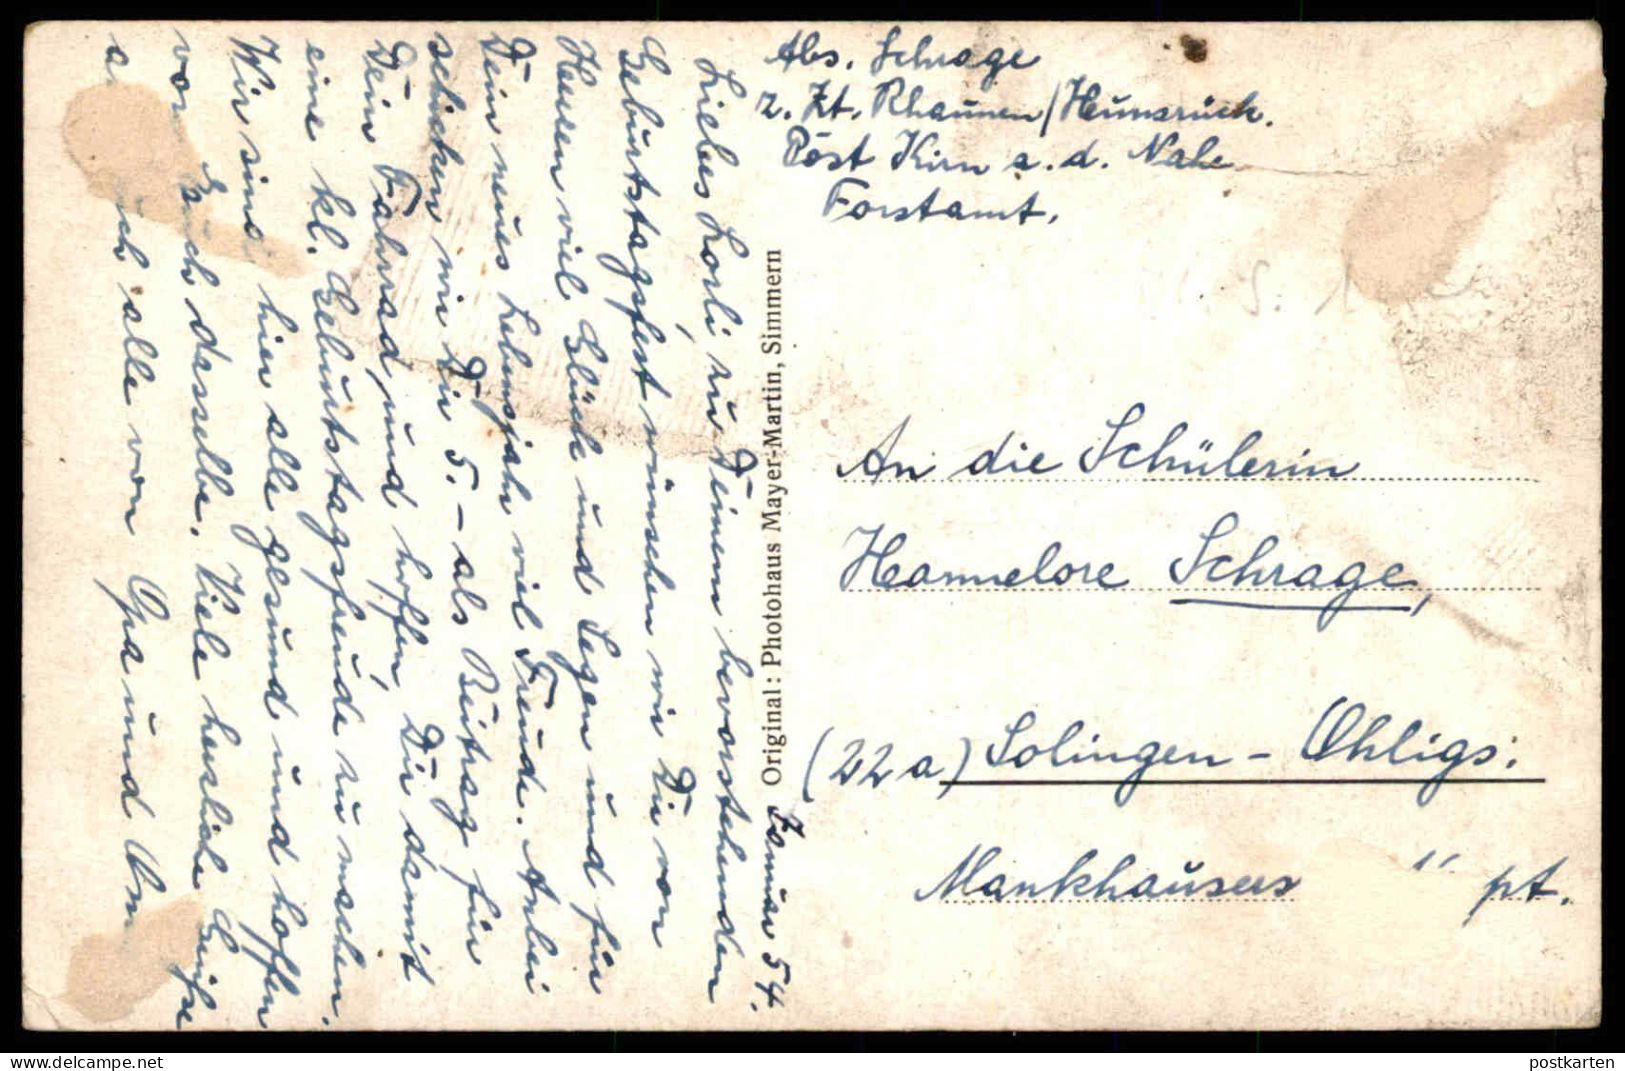 Abs. Schrage
z. Zt. Rhaunen/Hunsrück.
Post Kirn a. d. Nahe
Forstamt.
Liebes Lorli, zu Deinem bevorstehenden
Geburtstagsfest wünschen wir Dir von
Herzen viel Glück und Segen und für
Dein neues Lebensjahr viel Freude. Anbei
schicken wir Dir 5.- als Beitrag für
Dein Fahrrad, und hoffen, Dir damit
eine kl. Geburtstagsfreude zu machen.
Wir sind hier alle gesund und hoffen
von Euch dasselbe. Viele herzliche Grüße
alle von Opa und
Original: Photohaus Mayer-Martin, Simmern
Januar 54.
An die Schülerin
Hannelore Schrage,
(22a) Solingen - Ohligs:
Mankhauser pt.
postkarten